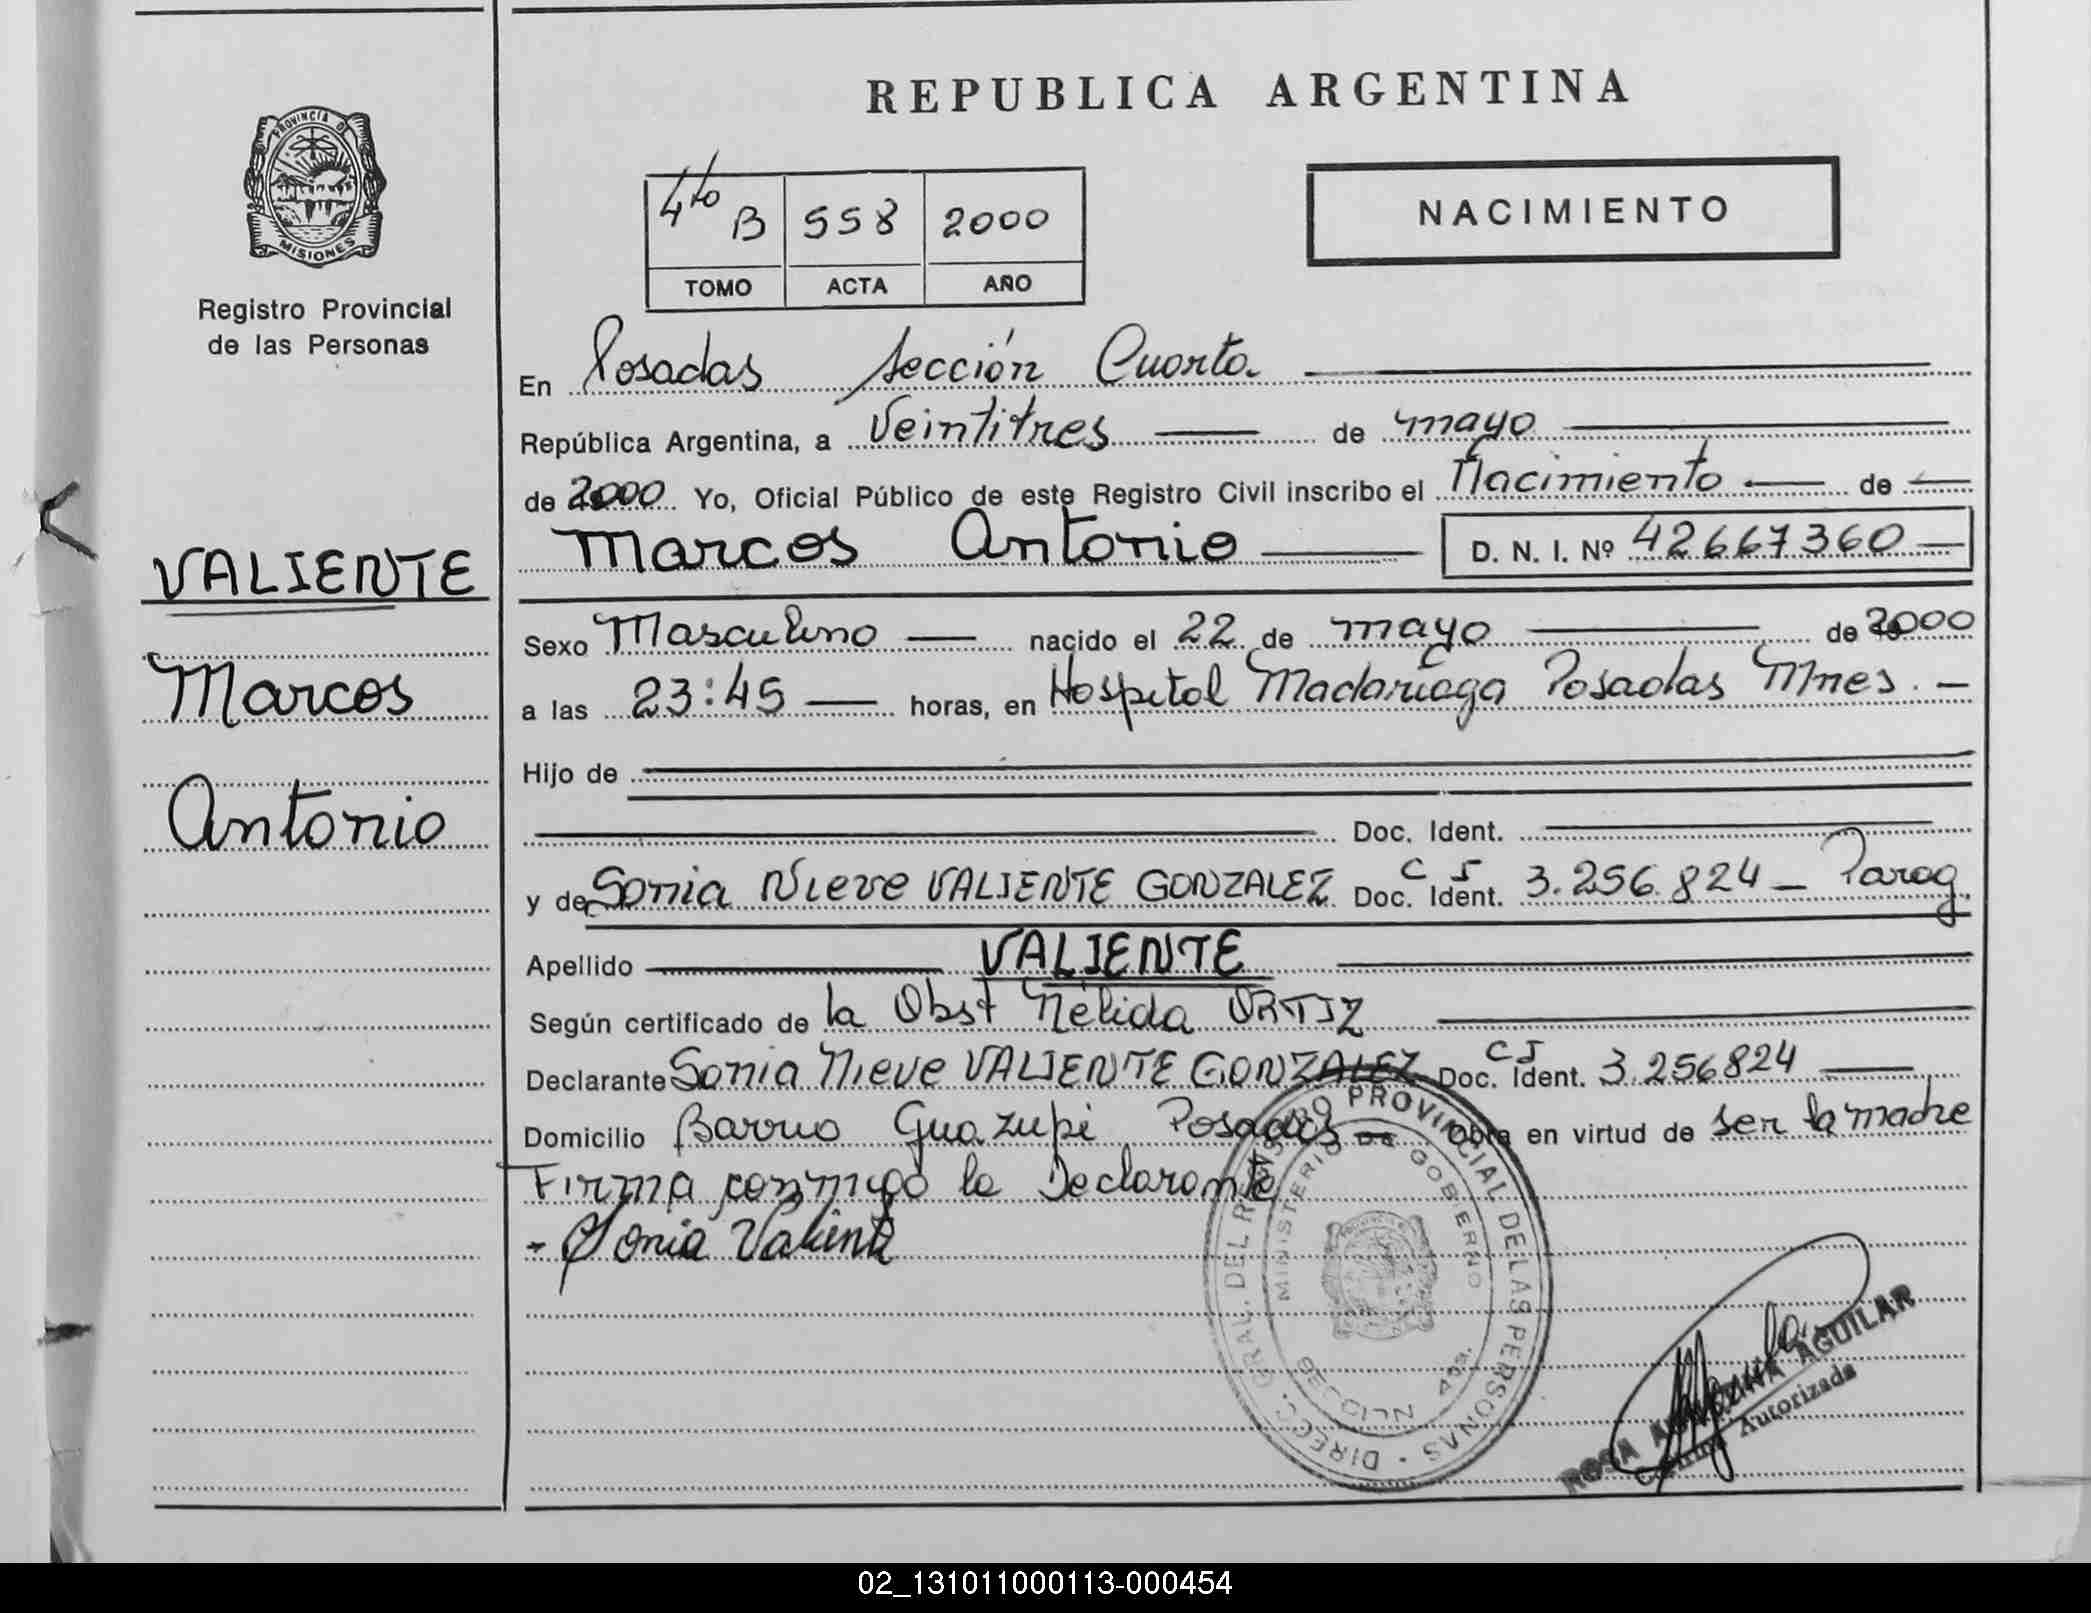 REPUBLICA ARGENTINA
PROVINCIA DE
MISIONES
Registro Provincial
de las Personas
4to B 558 2000
TOMO ACTA AÑO
NACIMIENTO
En Posadas Sección Cuarta
República Argentina, a Veintitres de mayo
de 2000 Yo, Oficial Público de este Registro Civil inscribo el Nacimiento de
Marcos Antonio D. N. I. Nº 42667360
VALIENTE
Marcos
Antonio
Sexo Masculino nacido el 22 de mayo de 2000
a las 23:45 horas, en Hospital Madariaga Posadas Mnes.
Hijo de
Doc. Ident.
y de Sonia Nieve VALIENTE GONZALEZ Doc. Ident. C I 3.256.824 Parag
Apellido VALIENTE
Según certificado de la Obst Nélida ORTIZ
Declarante Sonia Nieve VALIENTE GONZALEZ Doc. Ident. C I 3.256824
Domicilio Barrio Guazupi Posadas Obra en virtud de ser la madre
Firma conmigo la Declarante
- Sonia Valiente
DIRECC. GRAL. DEL REGISTRO PROVINCIAL DE LAS PERSONAS
MINISTERIO DE GOBIERNO
ROSA AGUILAR
Autorizada
02_131011000113-000454